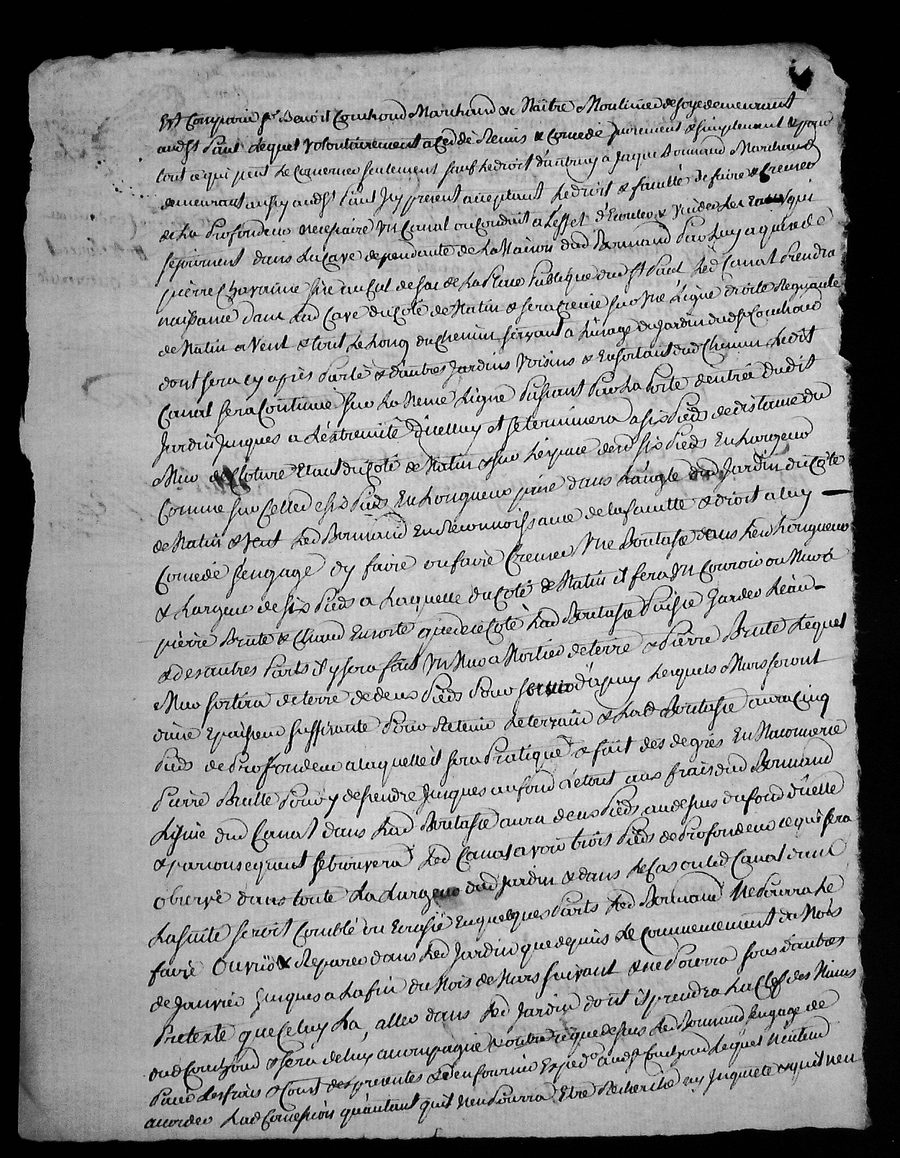 Est Comparu Sr Benoit Couchoud Marchand & Maître Moulinier de soye demeurant
audt St Paul Lequel Volontairement a Cedé Remis & Concedé purement & simplement & pour
tout ce qui peut Le Concerner seulement sauf Le droit d'autruy a Jaque Bonnand Marchand
demeurant aussy audt St Paul Icy present acceptant Le droit & faculté de faire & Creuser
de La Profondeur necessaire un Canal ou Conduit a L'effet d'Ecouler & Vuider Les Eaux qui
sejournent dans La Cave dependante de La Maison dud Bonnand Par Luy aquise de
pierre Chavanne size au de La Place Publique dud St Paul Led Canal Prendra
naissance dans Lad Cave du Coté de Matin & sera Creusé sur Une Ligne droite Regnante
de Matin a Vent & tout Le Long du Chemin servant a L'usage du Jardin dudt Sr Couchoud
dont sera cy après Parlé & d'autres Jardins Voisins & En sortant dud Chemin Ledit
Canal sera Continué sur La Meme Ligne Passant Par La Porte d'entrée dudit
Jardin Jusques a L'extremité d'icelluy et se terminera a six Pieds de distance du
Mur de Cloture Etant du Coté de Matin & sur L'espace desd six Pieds En Largeur
Comme sur Celle de six Pieds En Longueur prise dans L'angle dud Jardin du Côté
de Matin & Vent Led Bonnand En Reconnoissance de la faculté & droit a luy
Concedé s'engage d'y faire ou faire Creuser Une Boutasse dans Led Longueur
& Largeur de six Pieds a Laquelle du Coté de Matin il fera Un Couroir ou Mur a
pierre Brute & Chaud En sorte que de ce Coté Lad Boutasse Puisse Garder L'eau
& des autres Parts il y sera fait Un Mur a Mortier de terre & Pierre Brute Lequel
Mur sortira de terre de deux Pieds Pour servir d'apuy Lesquels Murs seront
d'une Epaisseur suffisante Pour Retenir Le terrain & Lad Boutasse aura Cinq
Pieds de Profondeur a laquelle il sera Pratiqué & fait des degrés En Maconnerie
Pierre Brutte Pour y descendre Jusques au fond Le tout aux frais dud Bonnand
L'issue dud Canal dans Lad Boutasse aura deux Pieds au dessus du fond d'icelle
& par consequent se trouvera Led Canal avoir trois Pieds de Profondeur ce qui sera
observé dans toute La Largeur dud Jardin & dans Le Cas ou Led Canal dans
La suite seroit Comblé ou En quelques Parts Led Bonnand Ne Pourra Le
faire Ouvrir & Reparer dans Led Jardin que depuis Le Commencement du Mois
de Janvier Jusques a La fin du Mois de Mars suivant & ne Pourra sous d'autres
Pretexte que Celuy La, aller dans Led Jardin dont il prendra La Clef des Mains
dud Couchoud & sera de luy accompagné outre ce que dessus Led Bonnand s'engage de
Paier Les frais & Coust des presentes & d'en fournir Expedon audt Sr Couchoud Lequel n'entend
accorder Lad Concession qu'autant qu'il n'en Pourra Etre Recherché ny Inquieté & qu'il n'en